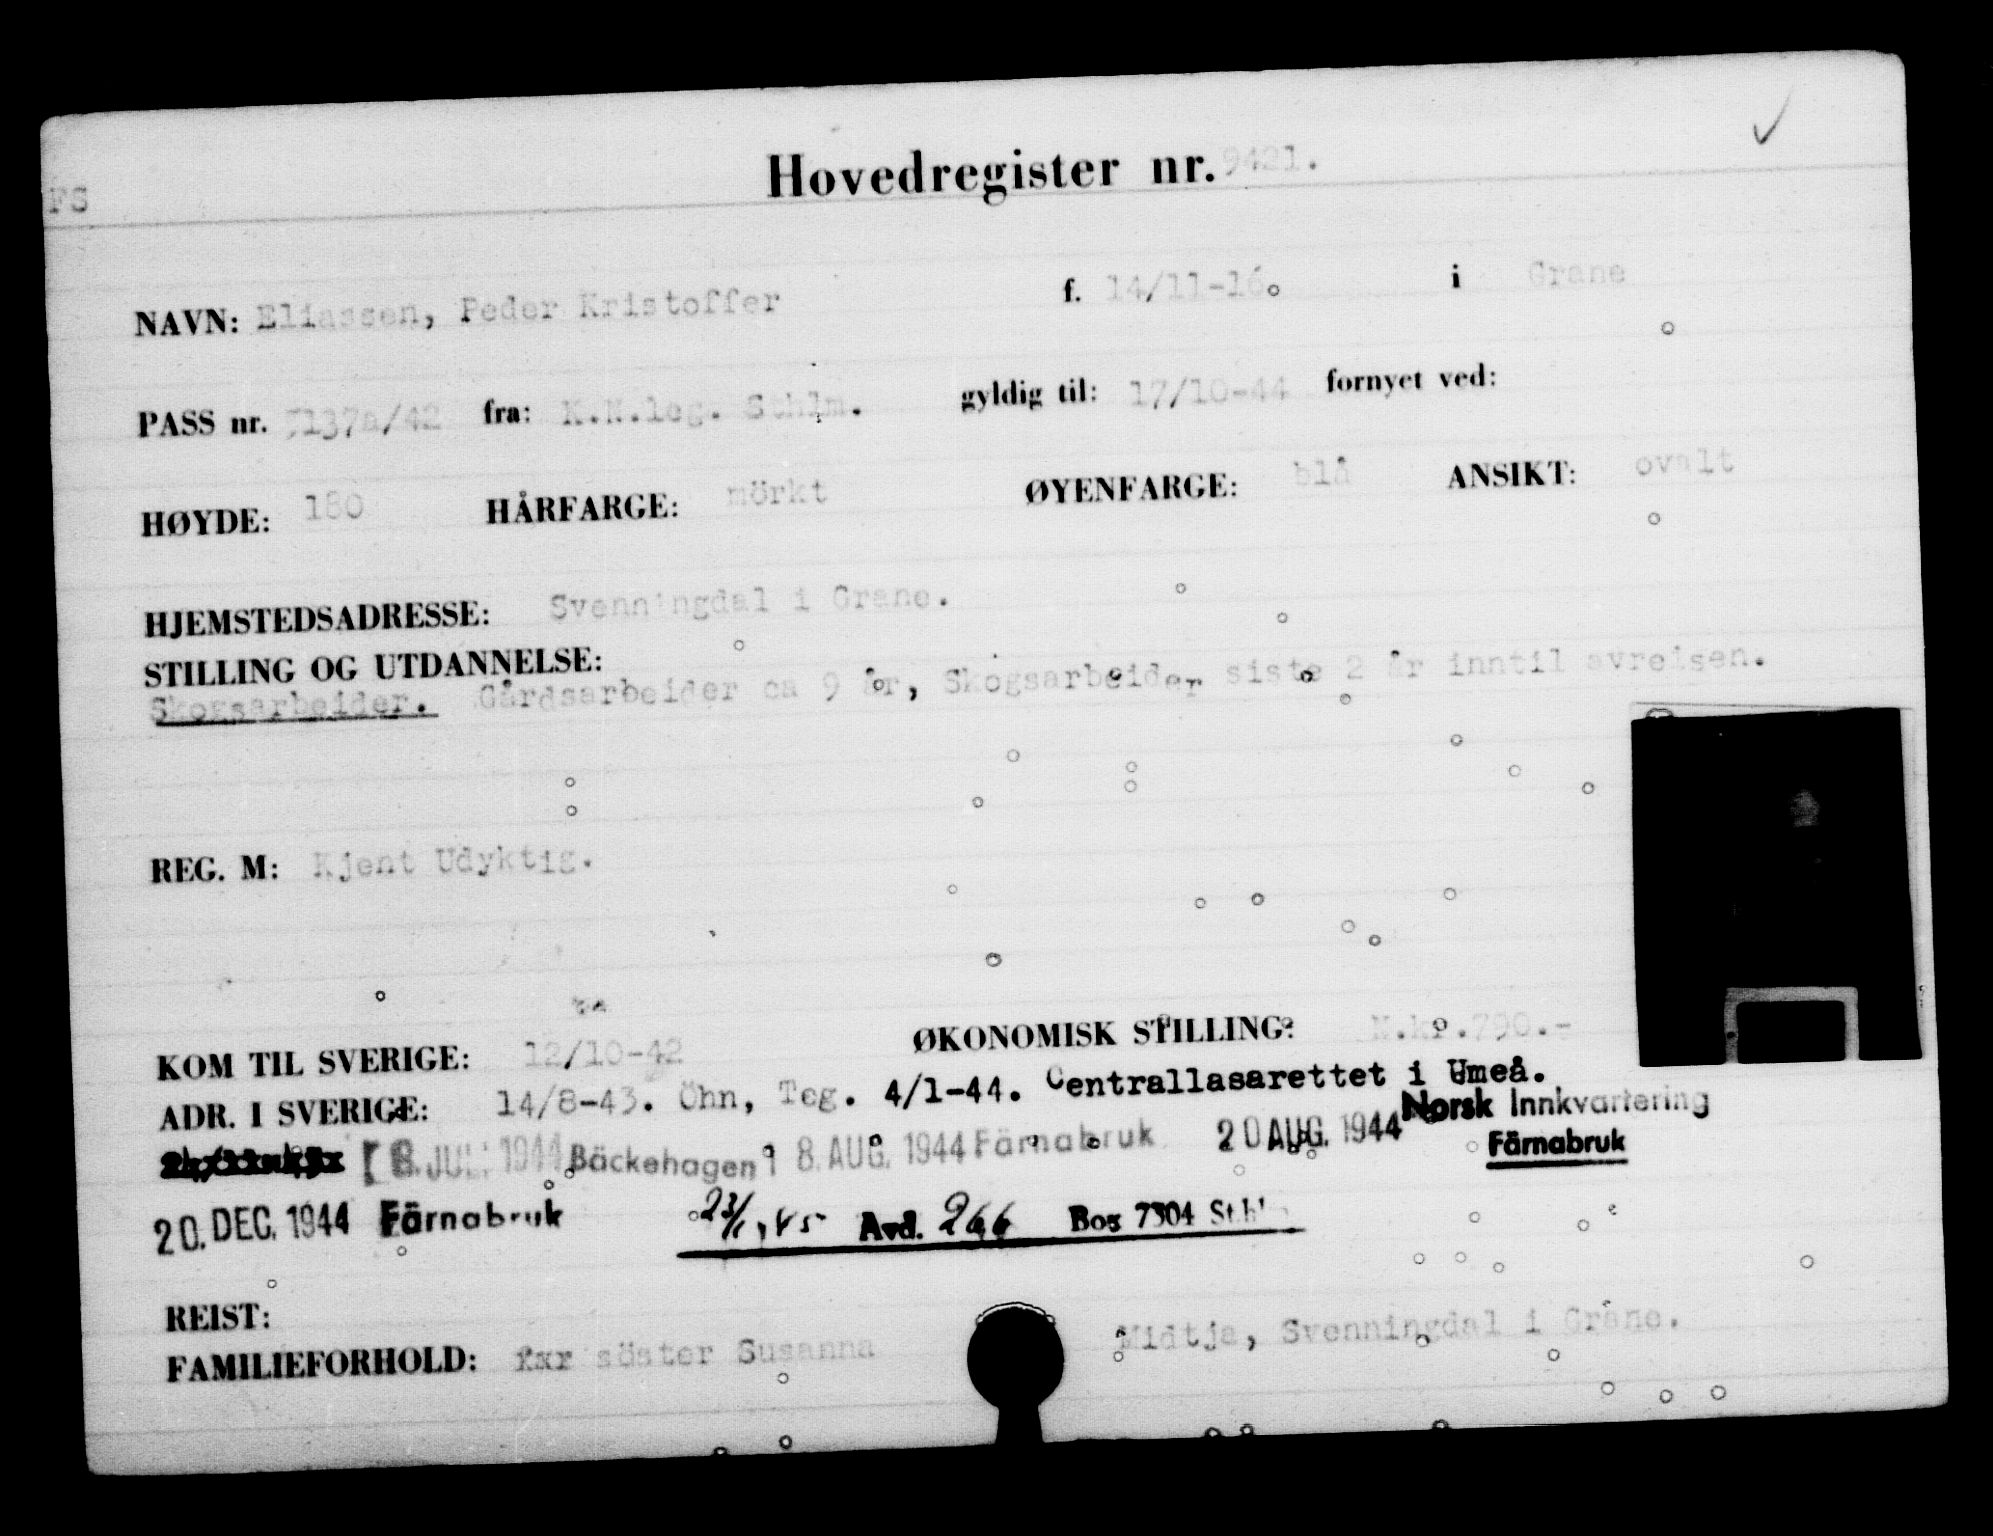 FS
Hovedregister nr. 9421.
NAVN: Eliassen, Peder Kristoffer f. 14/11-16. i Grane
PASS nr. 7137a/42 fra: K.N.leg. Sthlm. gyldig til: 17/10-44 fornyet ved:
HØYDE: 180 HÅRFARGE: mörkt ØYENFARGE: blå ANSIKT: ovalt
HJEMSTEDSADRESSE: Svenningdal i Grane.
STILLING OG UTDANNELSE:
Skogsarbeider. Gårdsarbeider ca 9 år, Skogsarbeider siste 2 år inntil avreisen.
REG. M: Kjent Udyktig.
KOM TIL SVERIGE: 12/10-42 ØKONOMISK STILLING: N.kr.790.-
ADR. I SVERIGE: 14/8-43. Öhn, Teg. 4/1-44. Centrallasarettet i Umeå.
8. JUL. 1944 Bäckehagen 18. AUG. 1944 Färnabruk 20 AUG. 1944 Norsk Innkvartering
Färnabruk
20. DEC. 1944 Färnabruk 23/1, 45 Avd. 266 Box 7304 Sthlm
REIST:
FAMILIEFORHOLD: söster Susanna Midtja, Svenningdal i Grane.